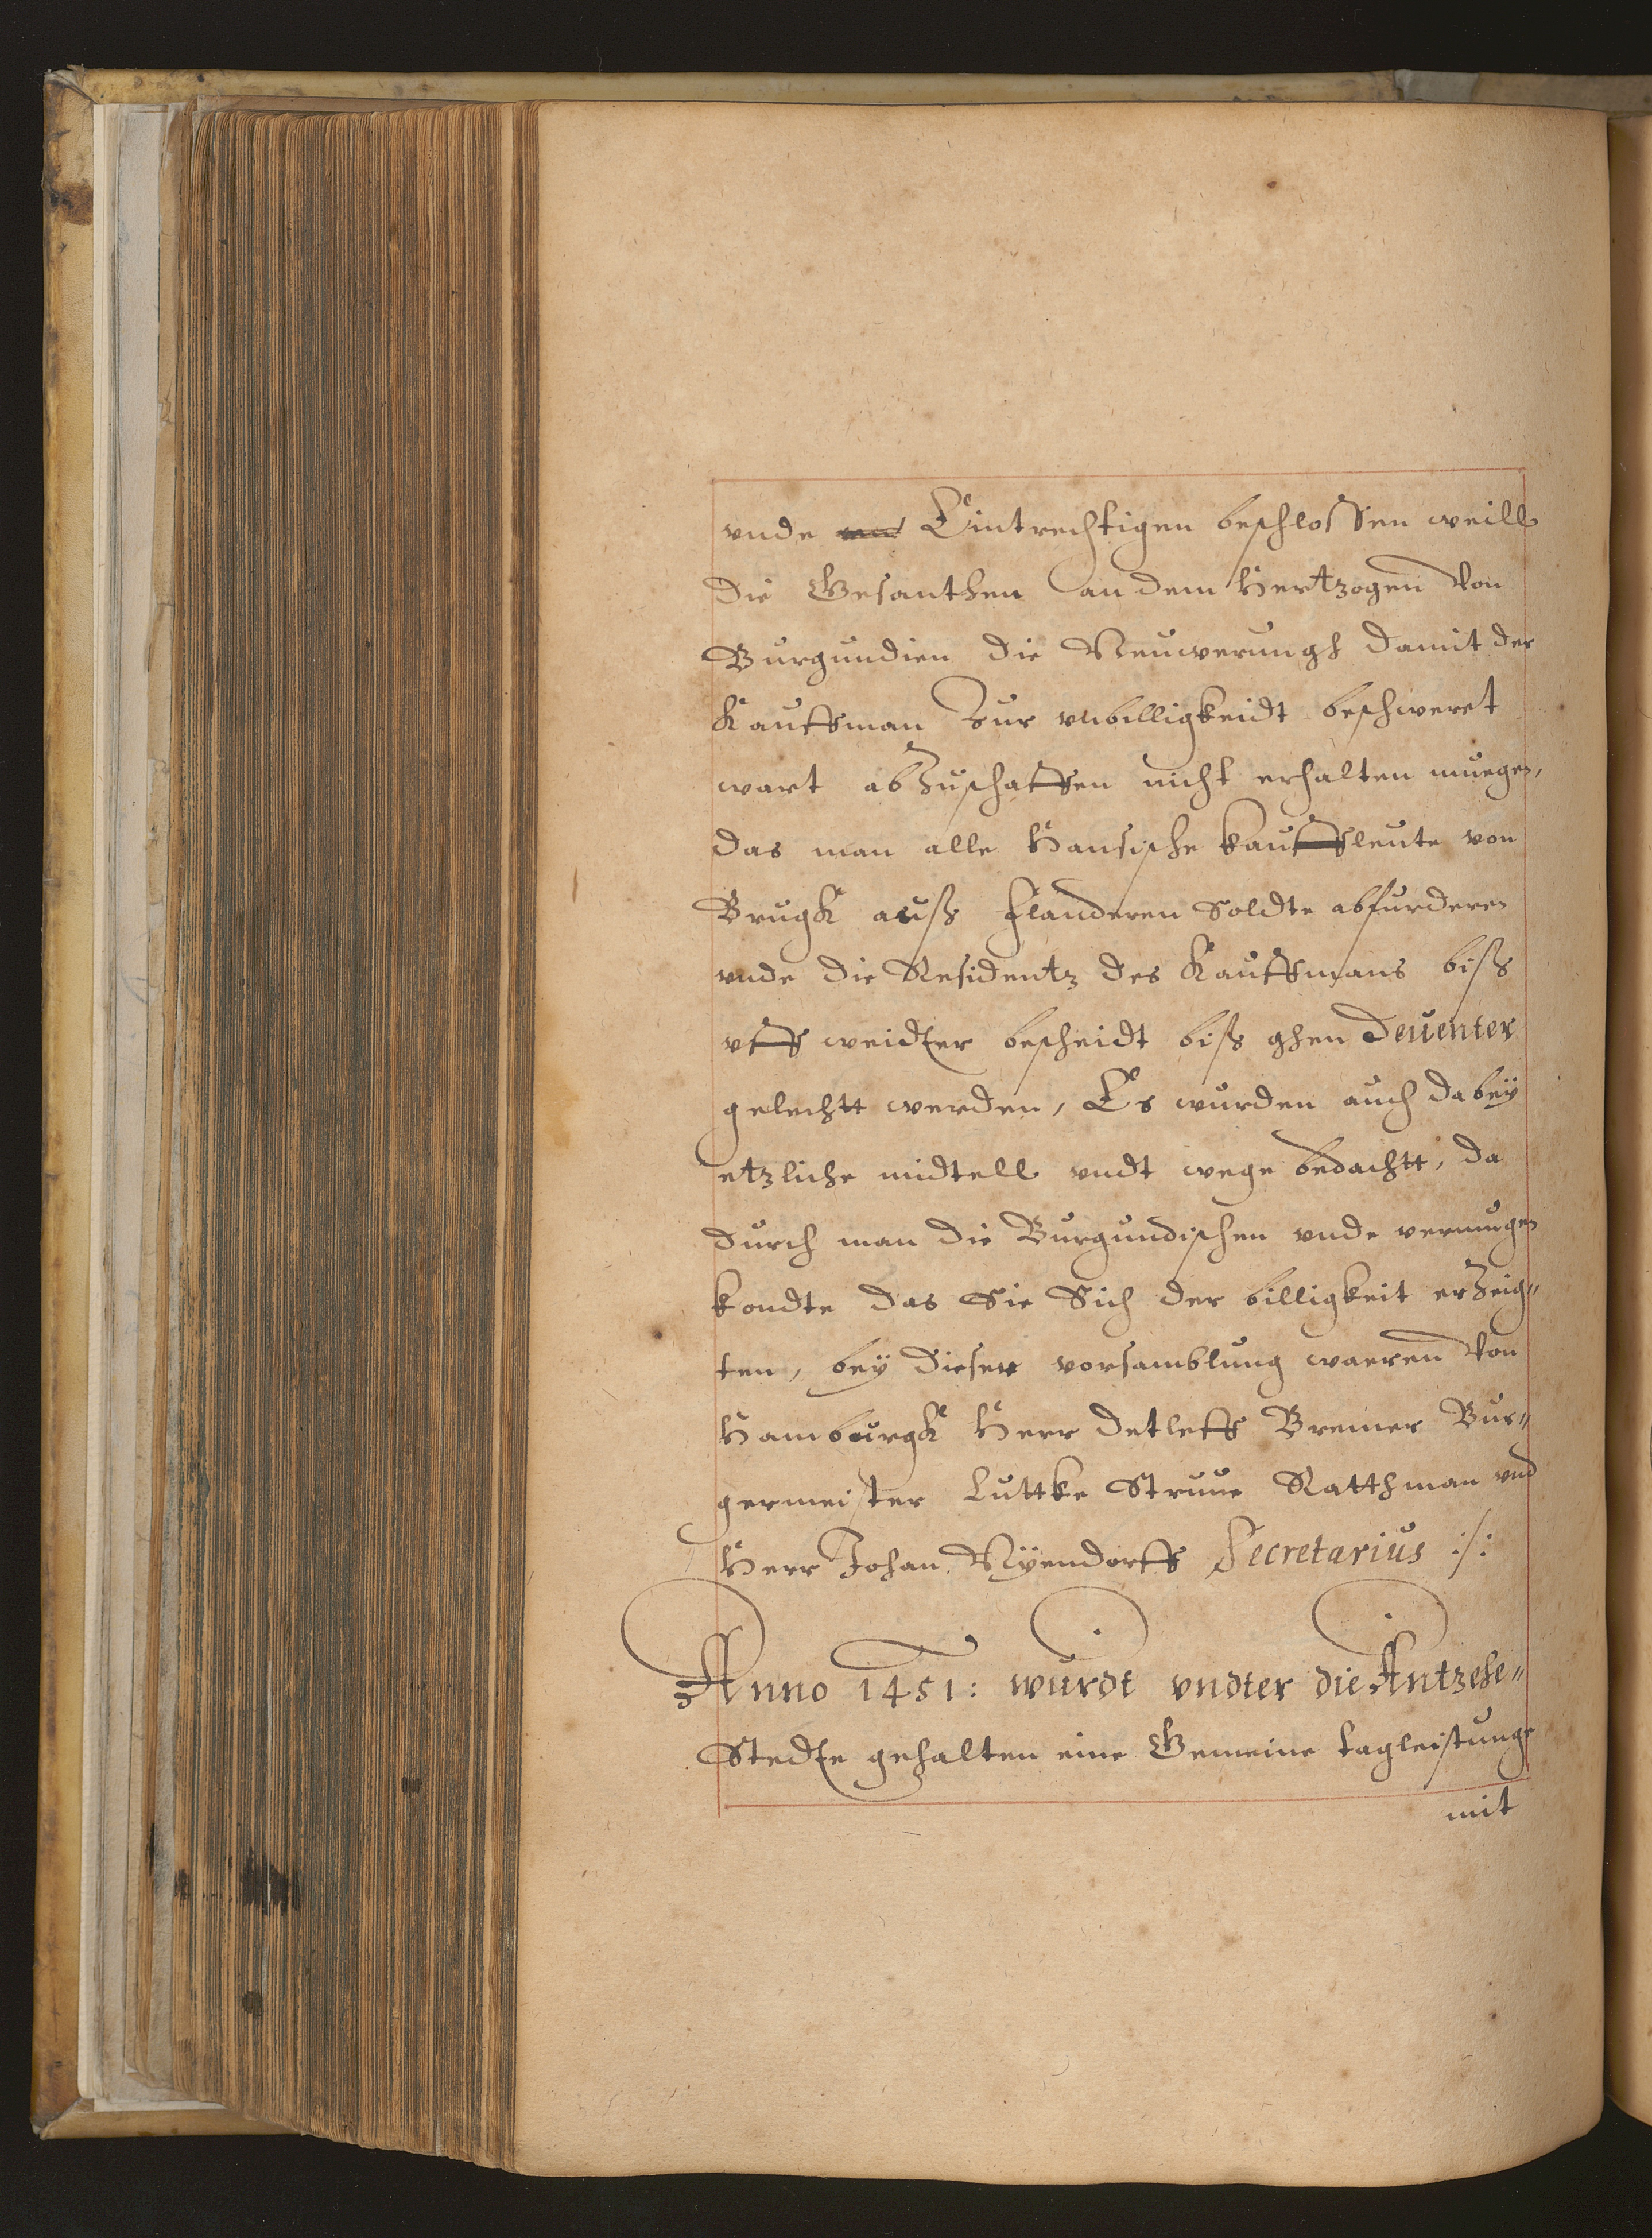 vnde Eintrechtigen beschlossen weill
die Gesanthen an dem Hertzogen von
Burgundien die Neuwerungh damit der
Kauffman zur vnbilligkeidt beschweret
wart abzuschaffen nicht erhalten muegen,
das man alle Hansische kauffleute von
Brugk auß Flanderen soldte abfurderen
vnde die Residentz des Kauffmans biß
vff weidter bescheidt biß ghen Deuenter
gelechtt werden, Es wurden auch dabeÿ
etzliche midtell vndt wege bedachtt, da
durch man die Burgundischen vnde vermugen
kondte das Sie Sich der billigkeit erzeig„
ten, beÿ dieser vorsamblung waeren von
Hamburgk Herr Detleff Bremer Bur„
germeister Luttke Struue Ratthman vnd
Herr Johan Nÿendorff Secretarius :/:
Anno 1451: wurdt vndter die Antzehe„
Stedte gehalten eine Gemeine tagleistunge
mit